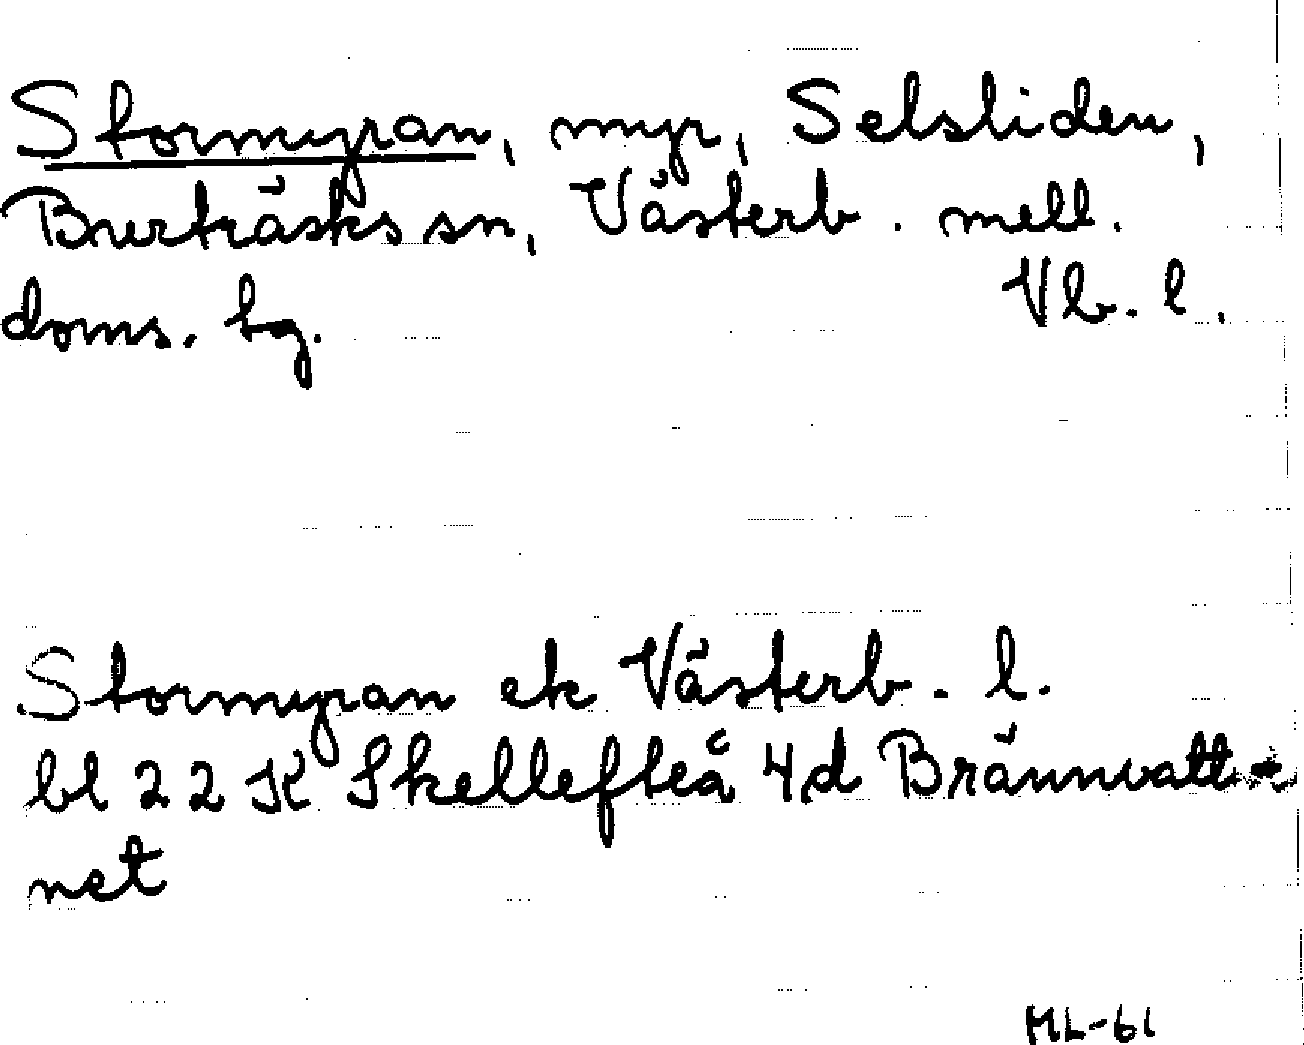 Stormyran, myr, Selsliden,
Burträsks sn, Västerb. mell.
doms. bg. Vb. l.
Stormyran ek Västerb. l.
bl 22 K Skellefteå 4d Brännvatt-
net
ML-61